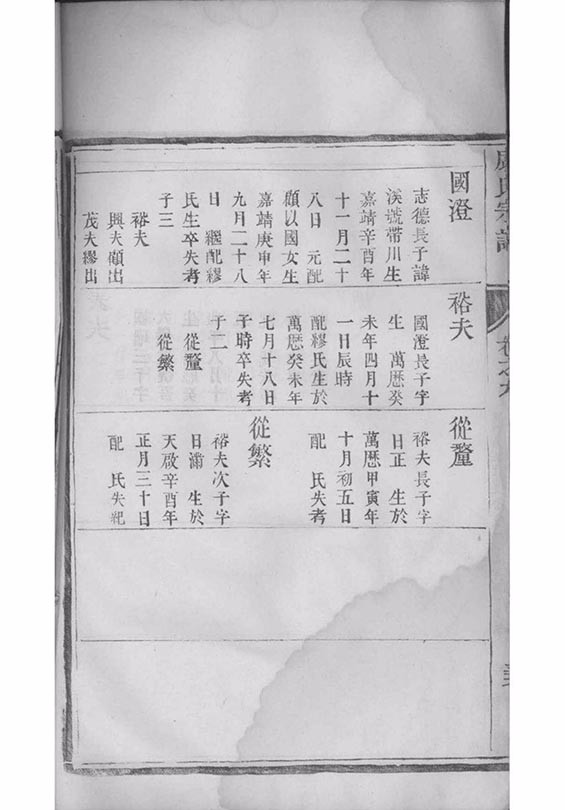 氏宗譜
國澄
志德長子諱
溪號帶川生
嘉靖辛酉年
十一月二十
八日 元配
顧以國女生
嘉靖庚申年
九月二十八
日 繼配繆
氏生卒失考
子三
裕夫
興夫顧出
茂夫繆出
裕夫
國澄長子字
生 萬厯癸
未年四月十
一日辰時
配繆氏生於
萬厯癸未年
七月十八日
子時卒失考
子二
從釐
從繁
從釐
裕夫長子字
日正 生於
萬厯甲寅年
十月初五日
配 氏失考
從繁
裕夫次子字
日滿 生於
天啟辛酉年
正月三十日
配 氏失紀